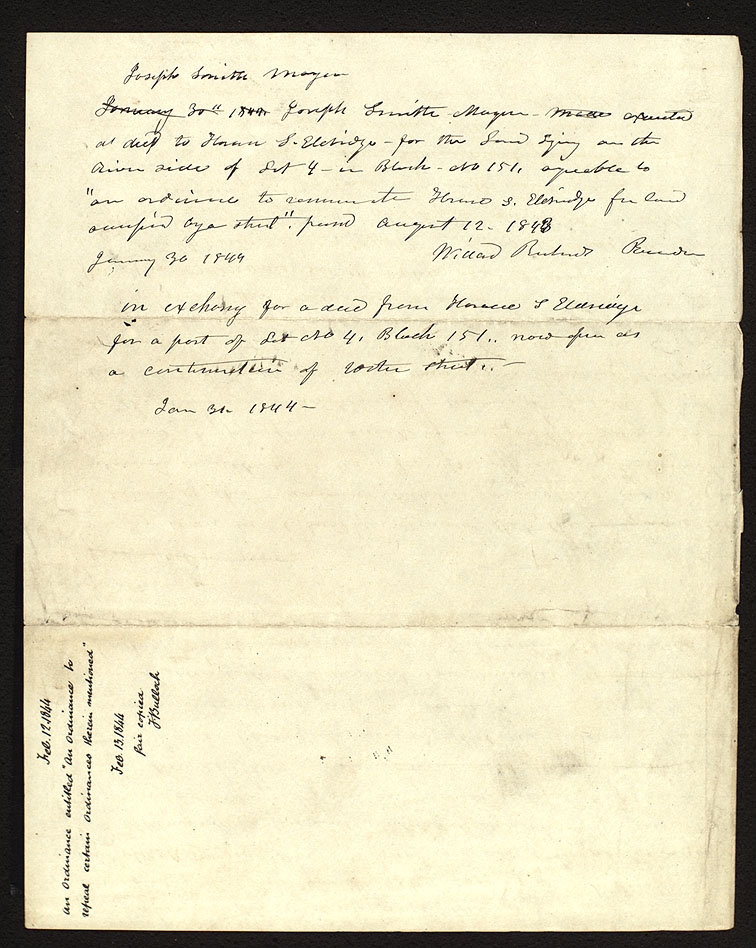 Joseph Smith Mayor
January 30th 1844 Joseph Smith Mayor made executed
a deed to Horace S. Eldridge for the Land lying on the
River side of Lot 4 in Block No 151, agreeable to
"an ordinance to remunerate Horace S. Eldridge for land
occupied by a street". passed August 12. 1843
January 30 1844 Willard Richards Recorder
in exchange for a deed from Horace S Eldridge
for a part of Lot No 4, Block 151., now open as
a continuation of Water street.
Jan 30 1844
Feb. 12. 1844
an Ordinance entitled "An Ordinance to
repeal certain Ordinances therein mentioned"
Feb. 13. 1844
fair copied
TBullock